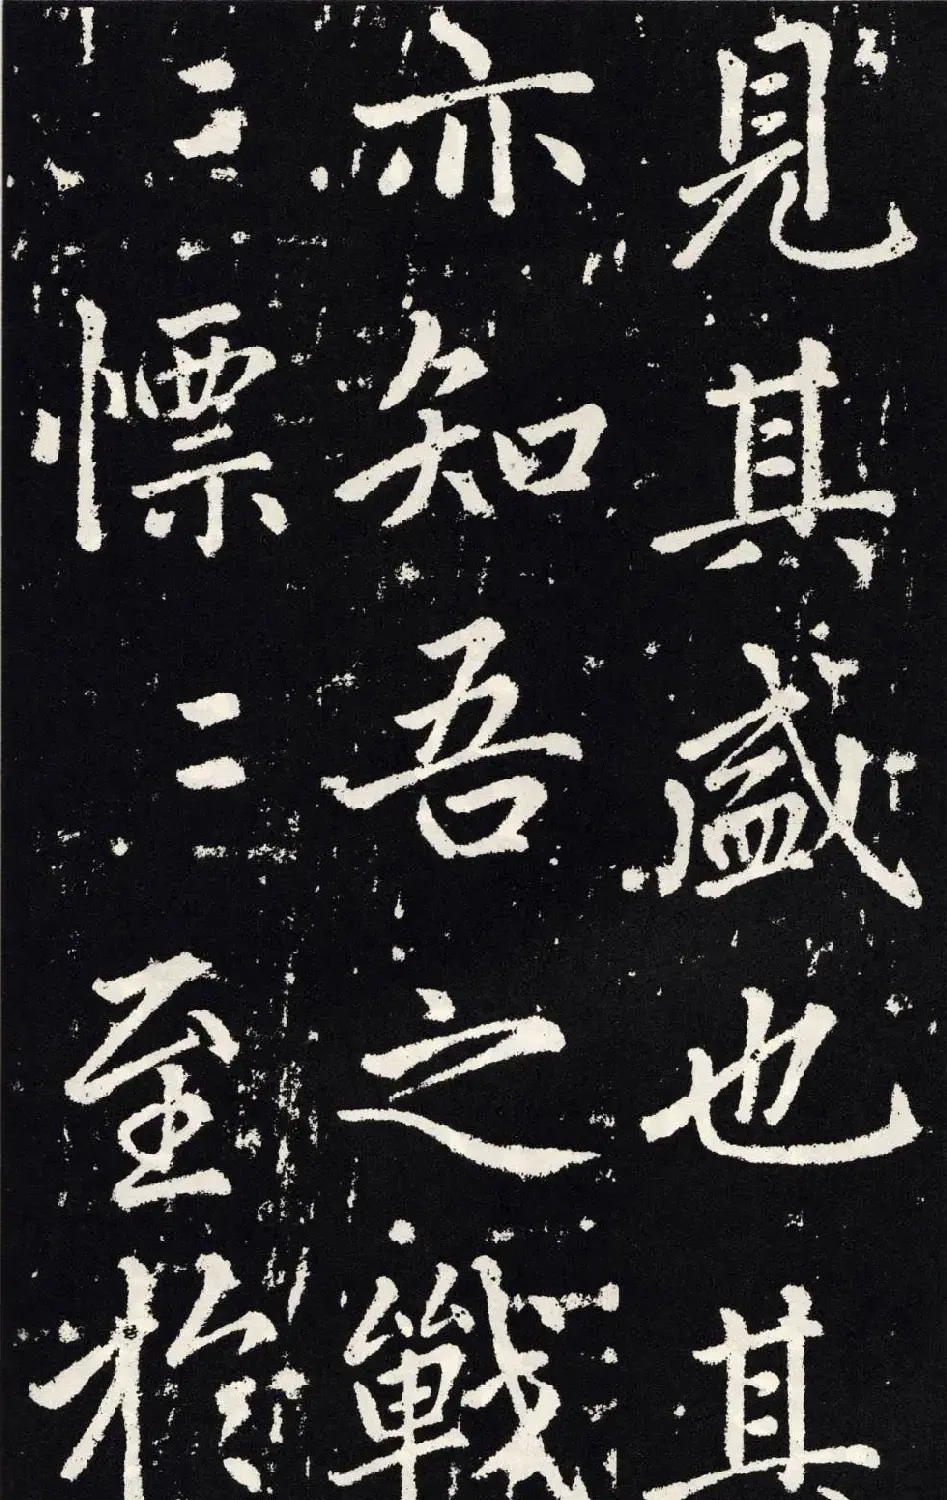 見其盛也其
亦知吾之戰
二慓二至於